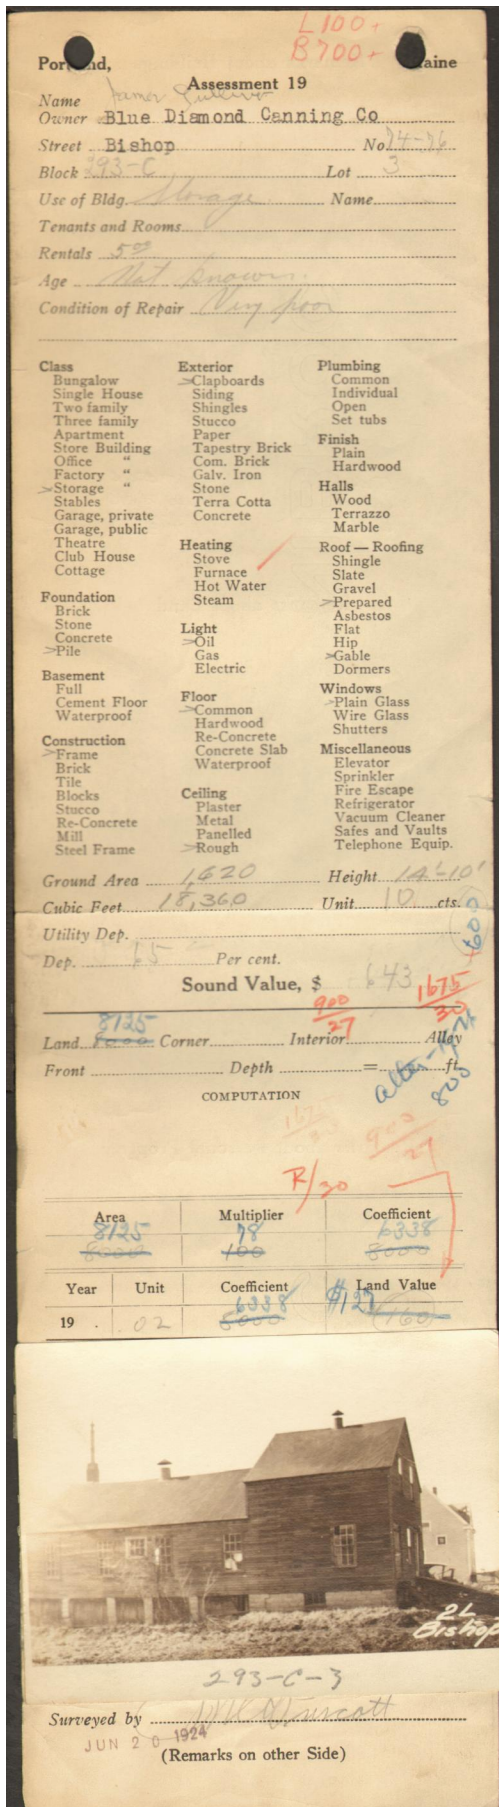 L 100+
B 700-
Portland, Maine
Assessment 19
Name James
Owner Blue Diamond Canning Co
Street Bishop No 74-76
Block 293-C Lot 3
Use of Bldg. Storage Name
Tenants and Rooms
Rentals 5.00
Age Not known.
Condition of Repair Very poor
Class
Bungalow
Single House
Two family
Three family
Apartment
Store Building
Office "
Factory "
>Storage "
Stables
Garage, private
Garage, public
Theatre
Club House
Cottage
Foundation
Brick
Stone
Concrete
>Pile
Basement
Full
Cement Floor
Waterproof
Construction
>Frame
Brick
Tile
Blocks
Stucco
Re-Concrete
Mill
Steel Frame
Exterior
>Clapboards
Siding
Shingles
Stucco
Paper
Tapestry Brick
Com. Brick
Galv. Iron
Stone
Terra Cotta
Concrete
Heating
Stove
Furnace
Hot Water
Steam
Light
>Oil
Gas
Electric
Floor
>Common
Hardwood
Re-Concrete
Concrete Slab
Waterproof
Ceiling
Plaster
Metal
Panelled
>Rough
Plumbing
Common
Individual
Open
Set tubs
Finish
Plain
Hardwood
Halls
Wood
Terrazzo
Marble
Roof — Roofing
Shingle
Slate
Gravel
>Prepared
Asbestos
Flat
Hip
>Gable
Dormers
Windows
>Plain Glass
Wire Glass
Shutters
Miscellaneous
Elevator
Sprinkler
Fire Escape
Refrigerator
Vacuum Cleaner
Safes and Vaults
Telephone Equip.
Ground Area 1,620 Height 14'-10'
Cubic Feet 18,360 Unit 10 cts.
+600
Utility Dep.
Dep. 65 Per cent.
Sound Value, $ 643
900/27 1675/30
8125
Land 8000 Corner Interior Alley
Front Depth = ft.
800
COMPUTATION
1675/30 900/27
R/30
Area Multiplier Coefficient
8125 78 6338
8000 100 8000
Year Unit Coefficient Land Value
6338 $127
19 . .02 8000 160
2L
Bishop
293-C-3
Surveyed by
JUN 20 1924
(Remarks on other Side)